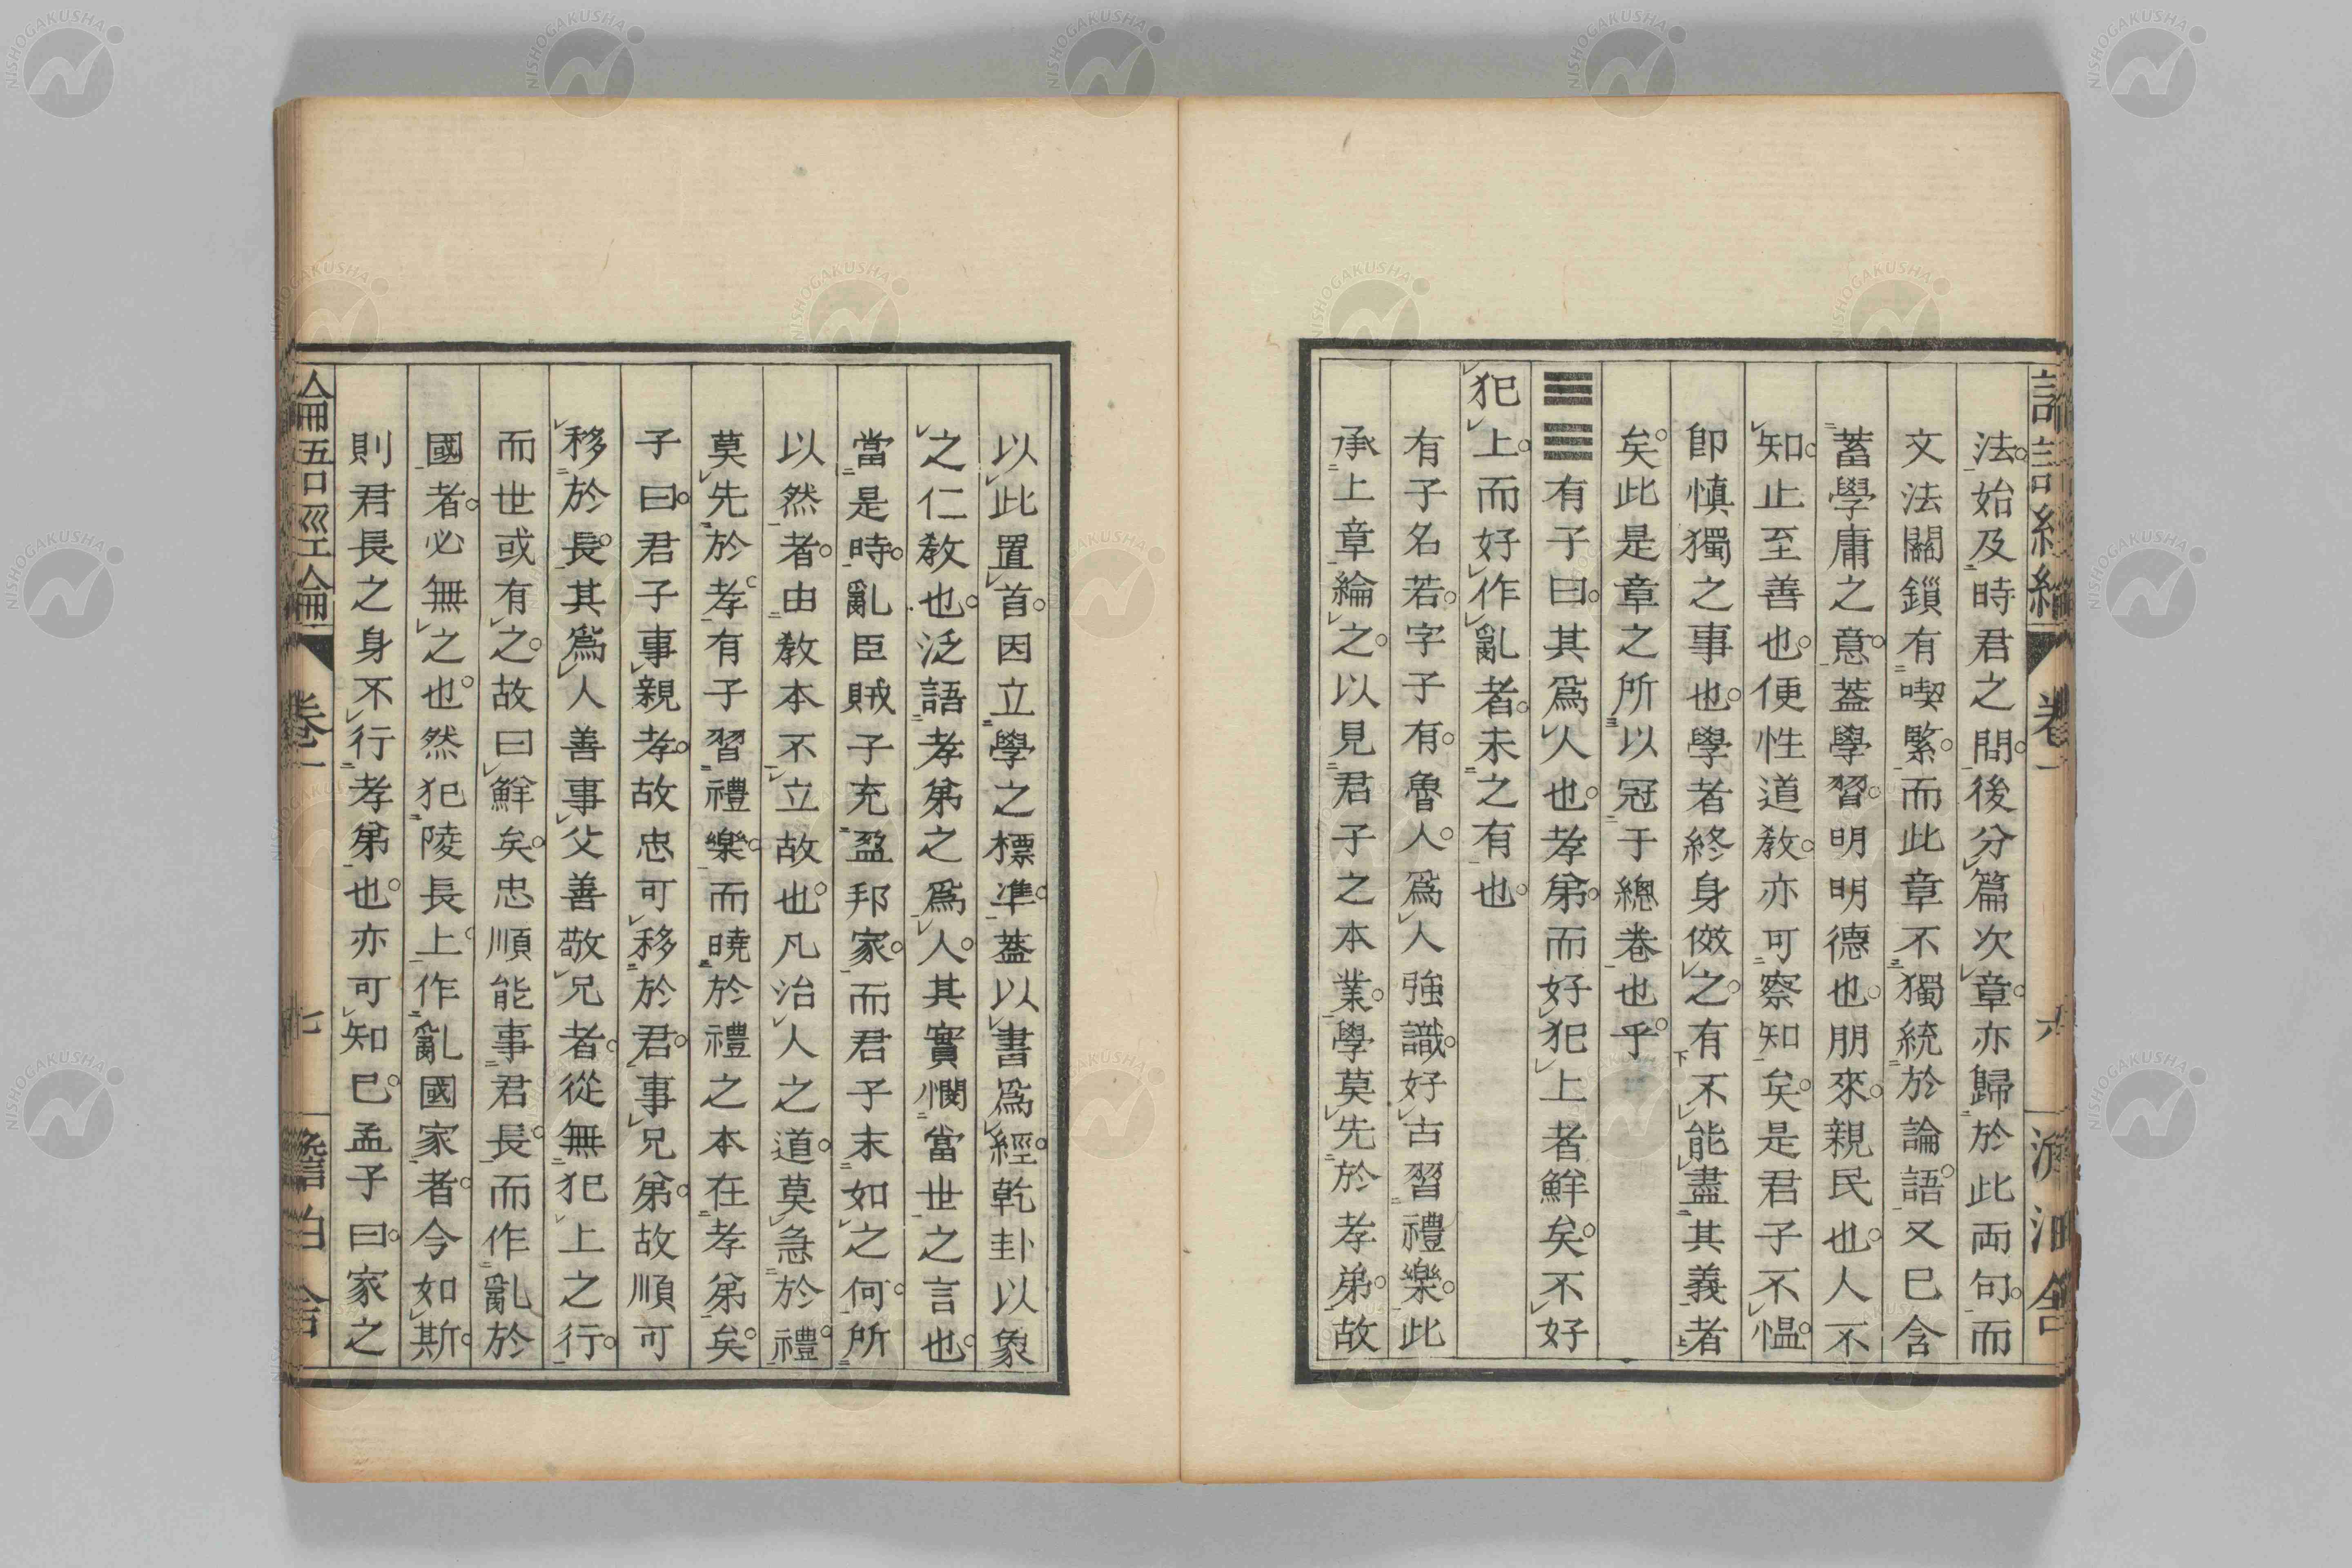 法。始及時君之問。後分篇次章。亦歸於此両句。而
文法關鎖有喫緊。而此章不獨統於論語。又已含
蓄學庸之意。蓋學習。明明德也。朋來。親民也。人不
知。止至善也。便性道教。亦可察知矣。是君子不愠。
即慎獨之事也。學者終身傚之。有不能盡其義者
矣。此是章之所以冠于總卷也乎。
有子曰。其爲人也。孝弟。而好犯上者鮮矣。不好
犯上。而好作亂者。未之有也。
有子名若。字子有。魯人。爲人強識。好古習禮樂。此
承上章綸之。以見君子之本業。學莫先於孝弟。故
以此置首。因立學之標準。蓋以書爲經。乾卦以象
之仁教也。泛語孝弟之爲人。其實憫當世之言也。
當是時。亂臣賊子充盈邦家。而君子末如之何。所
以然者。由教本不立故也。凡治人之道。莫急於禮。
莫先於孝。有子習禮樂。而曉於禮之本在孝弟矣。
子曰。君子事親孝。故忠可移於君。事兄弟。故順可
移於長。其爲人善事父善敬兄者。從無犯上之行。
而世或有之。故曰鮮矣。忠順能事君長。而作亂於
國者。必無之也。然犯陵長上。作亂國家者。今如斯。
則君長之身不行孝弟也。亦可知已。孟子曰。家之
論語經綸
卷一
七